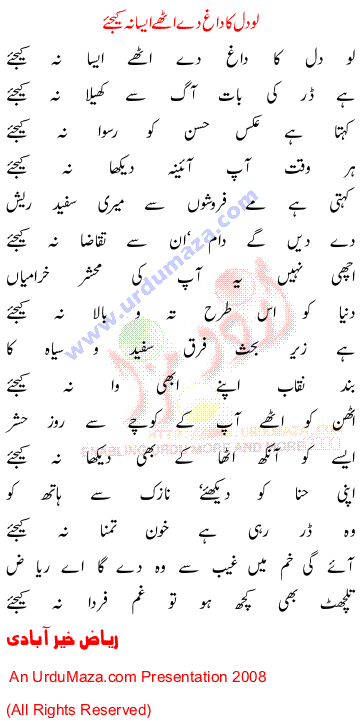 لو دل کا داغ دے اٹھے ایسا نہ کیجئے
لو دل کا داغ دے اٹھے ایسا نہ کیجئے
ہے ڈر کی بات آگ سے کھیلا نہ کیجئے
کہتا ہے عکس حسن کو رسوا نہ کیجئے
ہر وقت آپ آئینہ دیکھا نہ کیجئے
کہتی ہے مے فروشوں سے میری سفید ریش
دے دیں گے دام ،ان سے تقاضا نہ کیجئے
اچھی نہیں یہ آپ کی محشر خرامیاں
دنیا کو اس طرح تہ و بالا نہ کیجئے
ہے زیر بحث فرق سفید و سیاہ کا
بند نقاب اپنے ابھی وا نہ کیجئے
اٹھن کو اٹھے آپ کے کوچے سے روز حشر
ایسے کو آنکھ اٹھا کے بھی دیکھا نہ کیجئے
اپنی حنا کو دیکھئے نازک سے ہاتھ کو
وہ ڈر رہی ہے خون تمنا نہ کیجئے
آئے گی خم میں غیب سے وہ دے گا اے ریا ض
تلچھٹ بھی کچھ ہو تو غم فردا نہ کیجئے
ریاض خیر آبادی
An UrduMaza.com Presentation 2008
(All Rights Reserved)
www.urdumaza.com
اردو مزا
HTTP://WWW.URDUMAZA.COM
ENABLING URDU MORE AND MORE